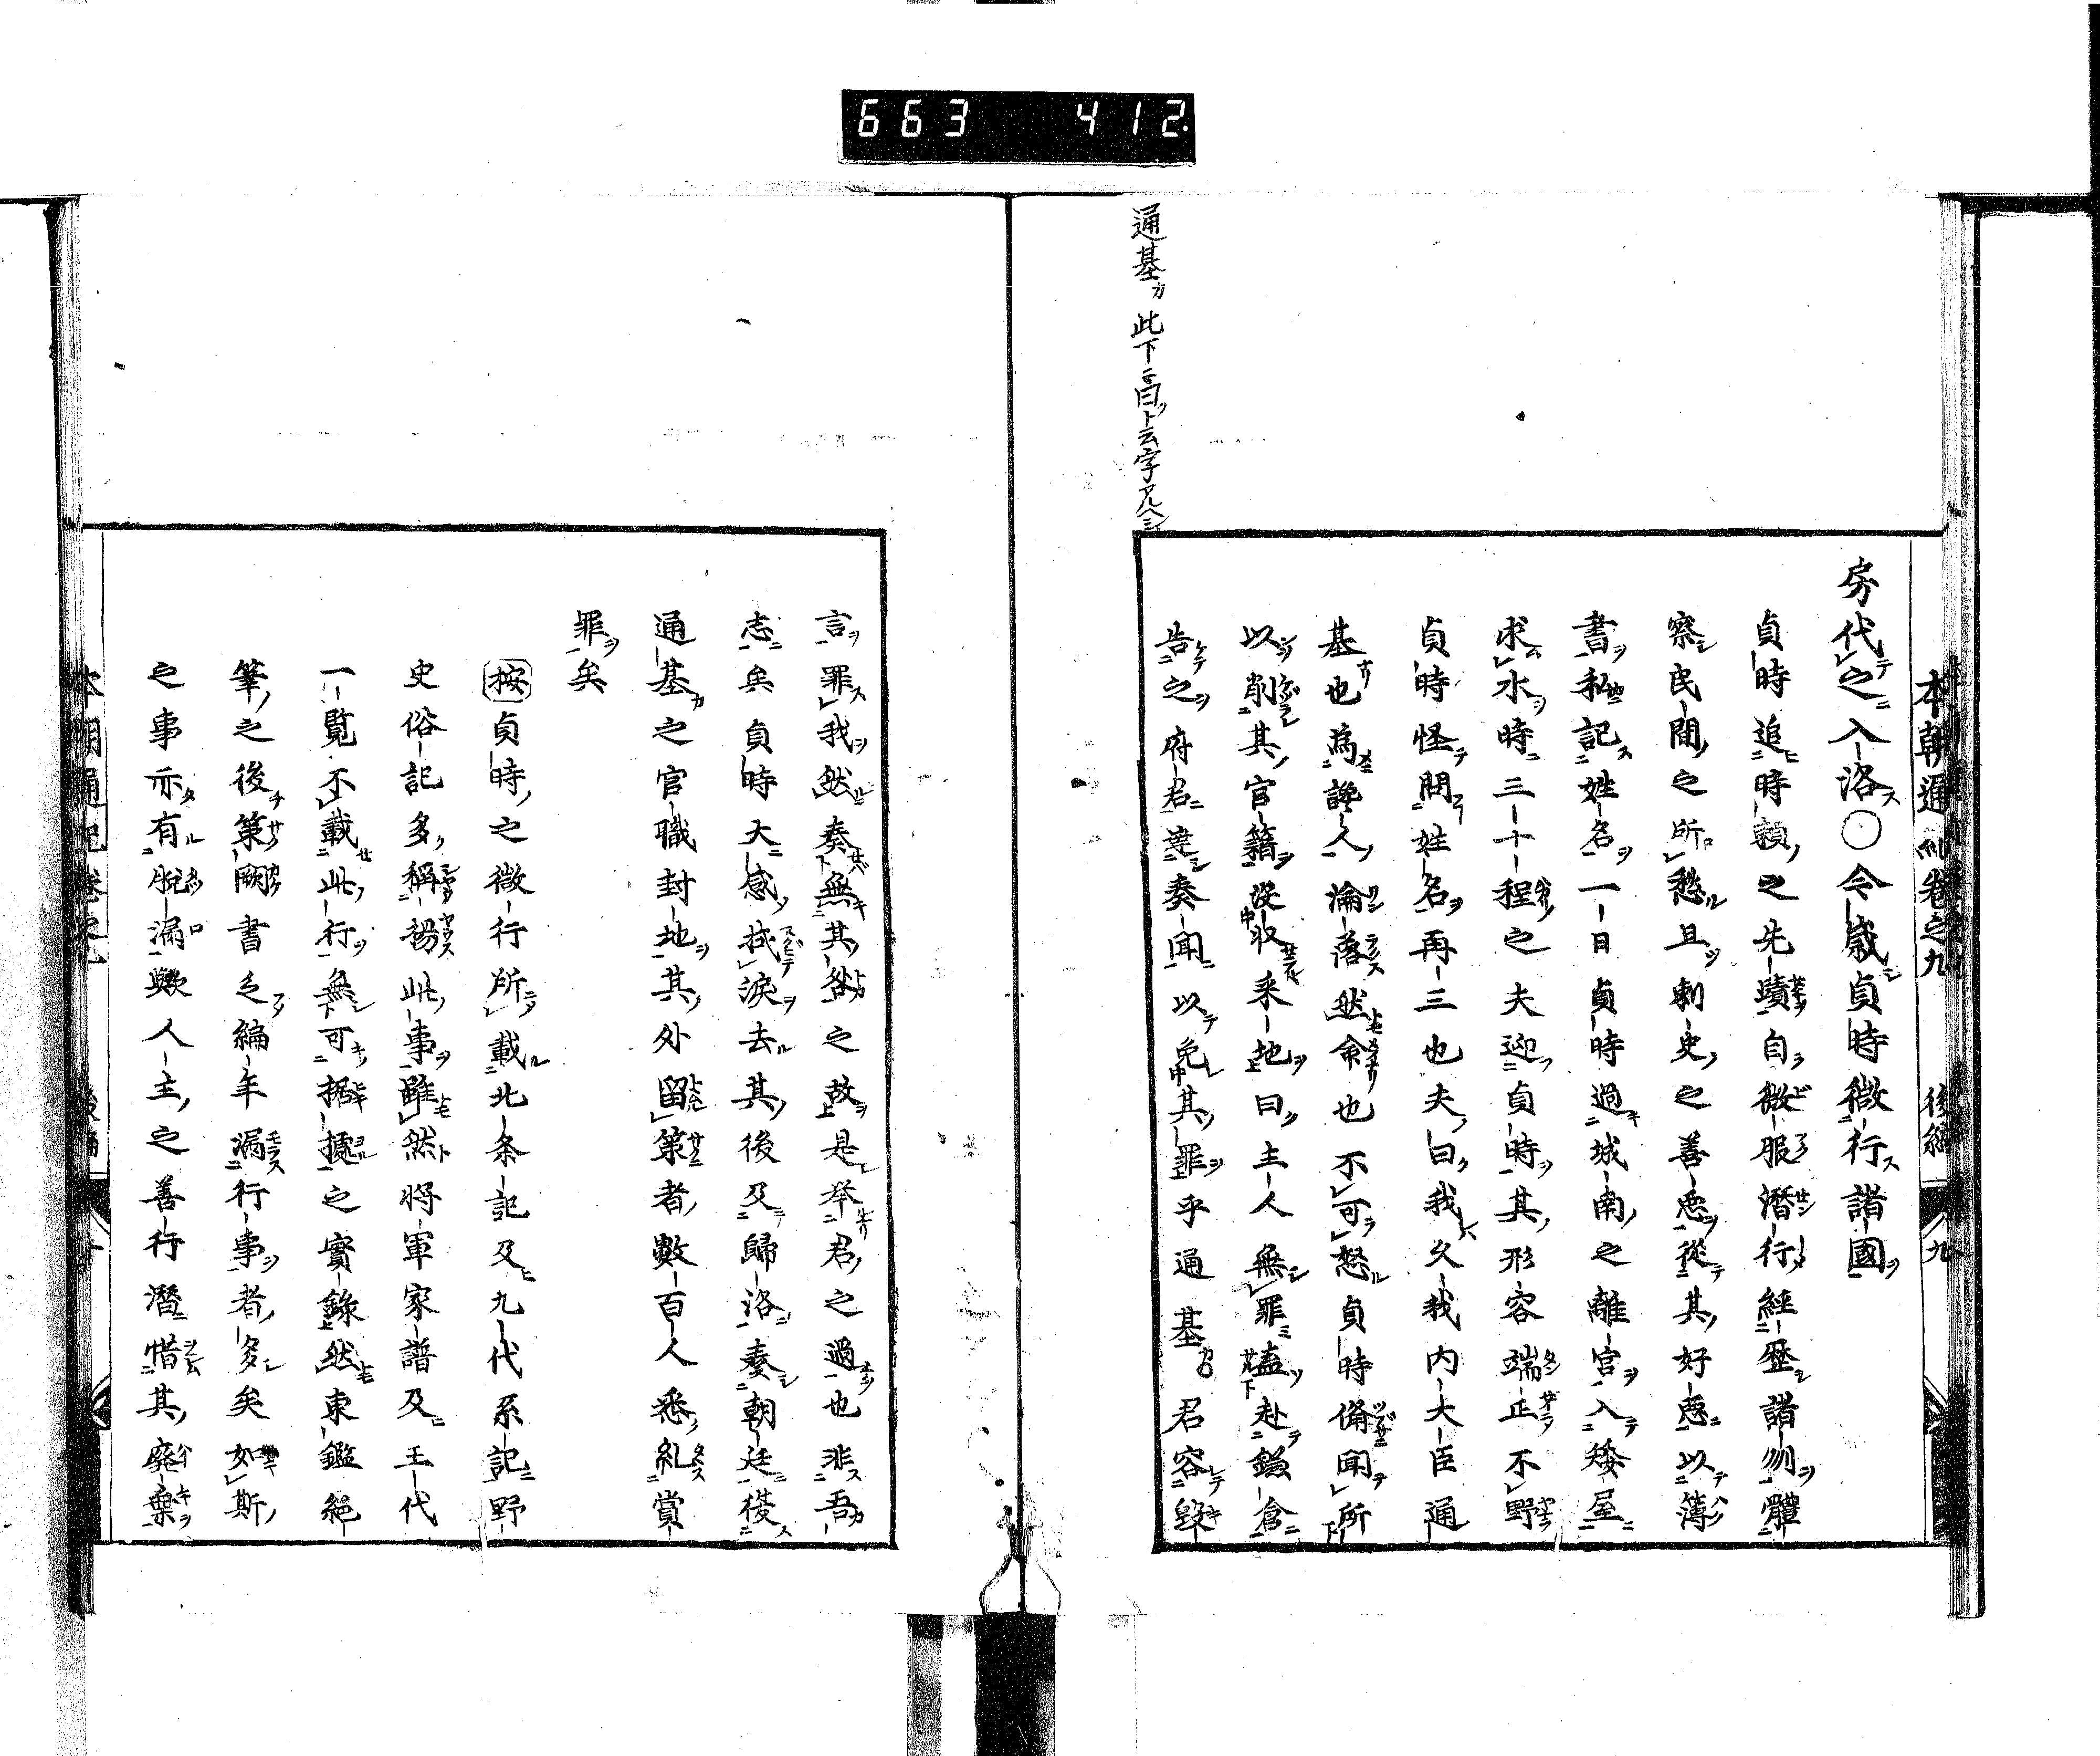 663 412
通基カ此下ニ曰ト云字アルヘシ
本朝通紀卷之九 後編 九
房代之入洛○今歲貞時微行諸國
貞時追時賴之先蹟自微服潛行經歷諸州體
察民間之所愁且刺史之善惡從其好惡以薄
書私記姓名一日貞時過城南之離宮入矮屋
求水時三十程之夫迎貞時其形容端正不野
貞時怪問姓名再三也夫曰我久我內大臣通
基也為讒人淪落然命也不可怒貞時備聞所
以削其官籍沒收采地曰主人無罪盍赴鎌倉
告之府君達奏聞以免其罪乎通基君容毀
言罪我然奏無其咎之故是举君之過也非吾
志矣貞時大感拭淚去其後及歸洛奏朝廷復
通基之官職封地其外留第者數百人悉糺賞
罪矣
按貞時之微行所載北条記及九代系記野
史俗記多稱揚此事雖然將軍家譜及王代
一覽不載此行無可據之實錄然東鑑絕
筆之後策厥書乏編年漏行事者多矣如斯
之事亦有脫漏歟人主之善行潛惜其廢棄
本朝通紀卷之九 後編